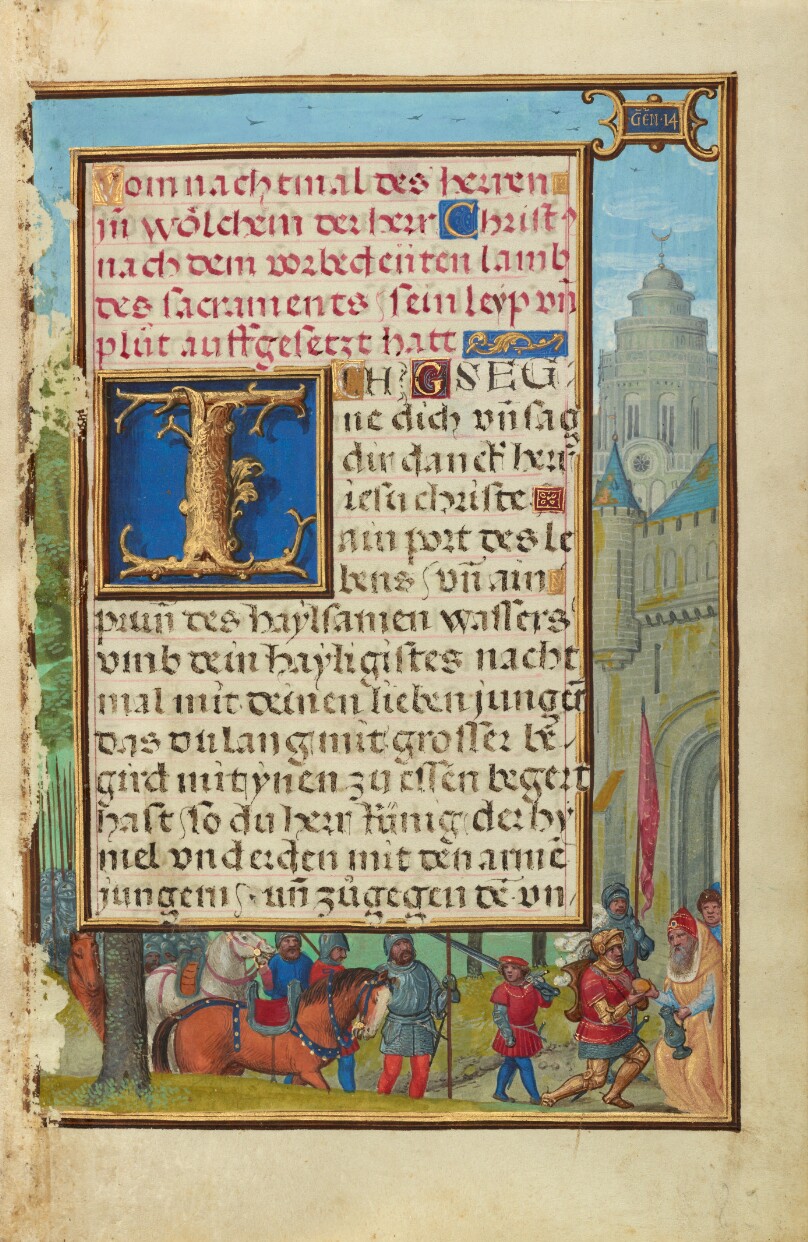 GEN·14
Vom nachtmal des herren
in wölchem der herr Christ⁹
nach dem vorbedeuten lamb
des sacraments / sein leyp vn̄
plůt auffgesetzt hatt
ICH GSEG
ne dich vn̄ sag
dir danck herr
iesu christe
ain port des le
bens / vn̄ ain
prun̄ des haylsamen wassers
vmb dein hayligistes nacht
mal mit deinen lieben junger̄
das du lang mit grosser be
gird mit ynen zu essen begert
hast / so du herr Künig der hy
mel vnd erden mit den armē
jungern / vn̄ zůgegen dē vn